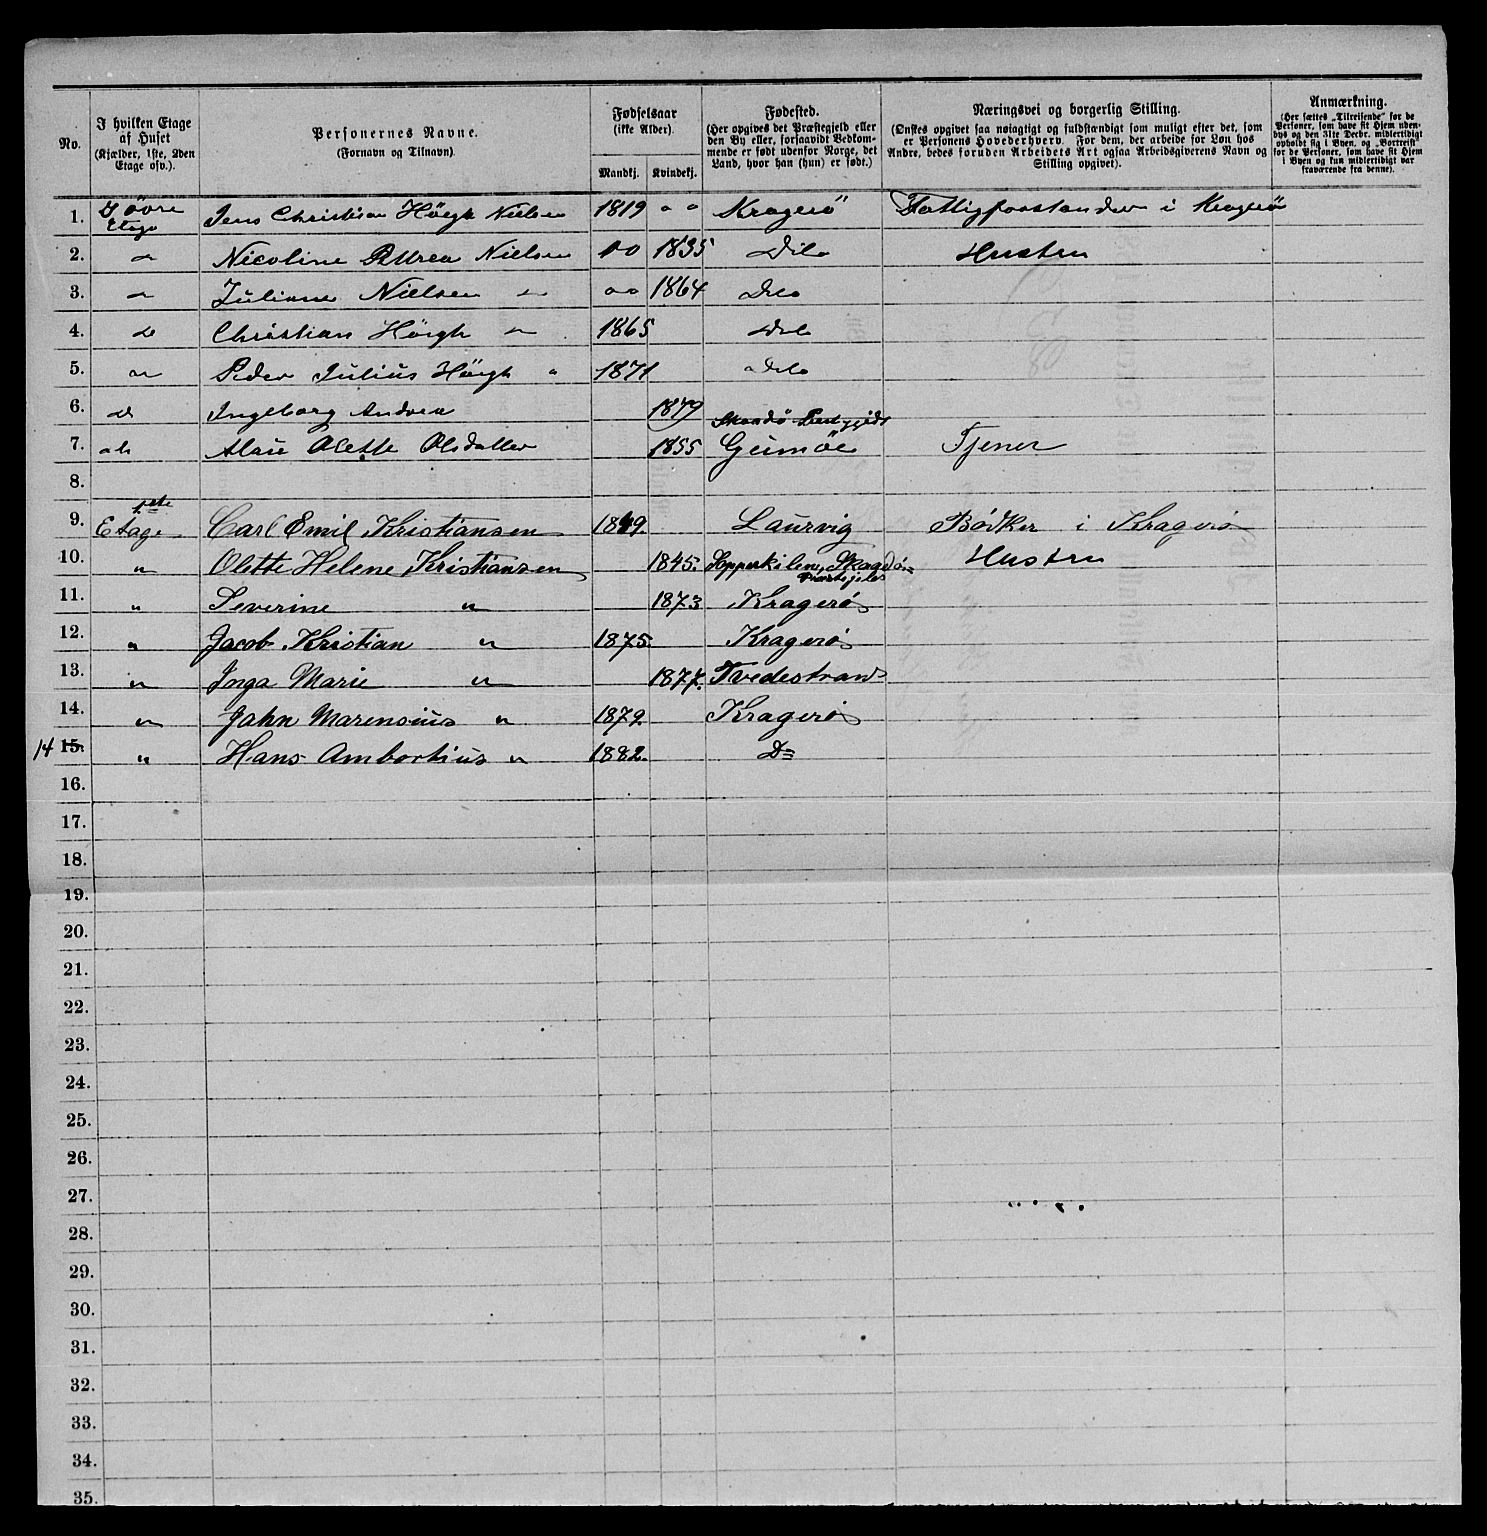 No.
I hvilken Etage
af Huset
(Kjælder, 1ste, 2den
Etage osv.).
Personernes Navne.
(Fornavn og Tilnavn).
Fødselsaar
(ikke Alder).
Mandkj. Kvindekj.
Fødested.
(Her opgives det Præstegjeld eller
den By eller, forsaavidt Vedkom-
mende er født udenfor Norge, det
Land, hvor han (hun) er født.)
Næringsvei og borgerlig Stilling.
(Ønskes opgivet saa nøiagtigt og fuldstændigt som muligt efter det, som
er Personens Hovederhverv. For dem, der arbeide for Løn hos
Andre, bedes foruden Arbeidets Art ogsaa Arbeidsgiverens Navn og
Stilling opgivet).
Anmærkning.
(Her sættes „Tilreisende" for de
Personer, som have sit Hjem uden-
bys og den 31te Decbr. midlertidigt
opholdt sig i Byen, og „Bortreist"
for de Personer, som have sit Hjem
i Byen og kun midlertidigt var
fraværende fra denne).
1. I øvre Etage Jens Christian Höegh Nielsen 1819 " " Kragerö Fattigforstander i Kragerö
2. " Nicoline Nielsen " " 1835 Dito Hustru
3. " Juliane Nielsen " " " 1864 Dito
4. " Christian Höegh " 1865 Dito
5. " Peder Julius Höegh " 1871 Dito
6. " Ingeborg Andrea 1879
7. Olette Olsdatter 1855 Skaadö Tjener
8.
9. 1ste Etage Carl Emil Kristiansen 1849. Laurvig Bödker i Kragerø
10. " Olette Helene Kristiansen 1845. Hustru
11. " Severine " 1873 Kragerø
12. " Jacob Kristian " 1875. Kragerø
13. " Inga Marie " 1877. Tvedestrand
14. " Jahn Marensius " 1879. Kragerø
14 15. " Hans Ambortius " 1882. D=
16.
17.
18.
19.
20.
21.
22.
23.
24.
25.
26.
27.
28.
29.
30.
31.
32.
33.
34.
35.